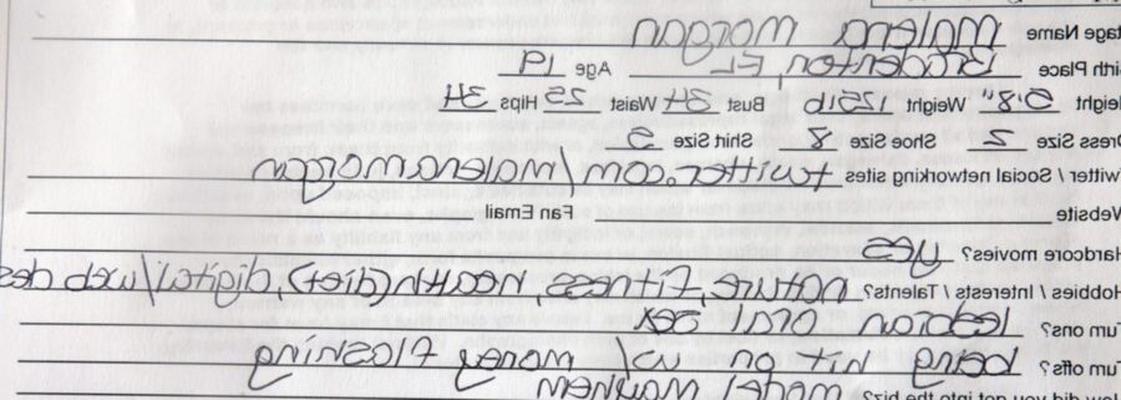 tage Name Malena Morgan
irth Place Bradenton, FL Age 19
eight 5'8" Weight 125lb Bust 34 Waist 25 Hips 34
Dress Size 2 Shoe Size 8 Shirt Size S
witter / Social networking sites twitter.com/malenamorgan
Website Fan Email
Hardcore movies? yes
Hobbies / Interests / Talents? nature, fitness, health(diet), digital/web des
Turn ons? lesbian oral sex
Turn offs? being hit on w/ money flashing
How did you get into the biz? model mayhem